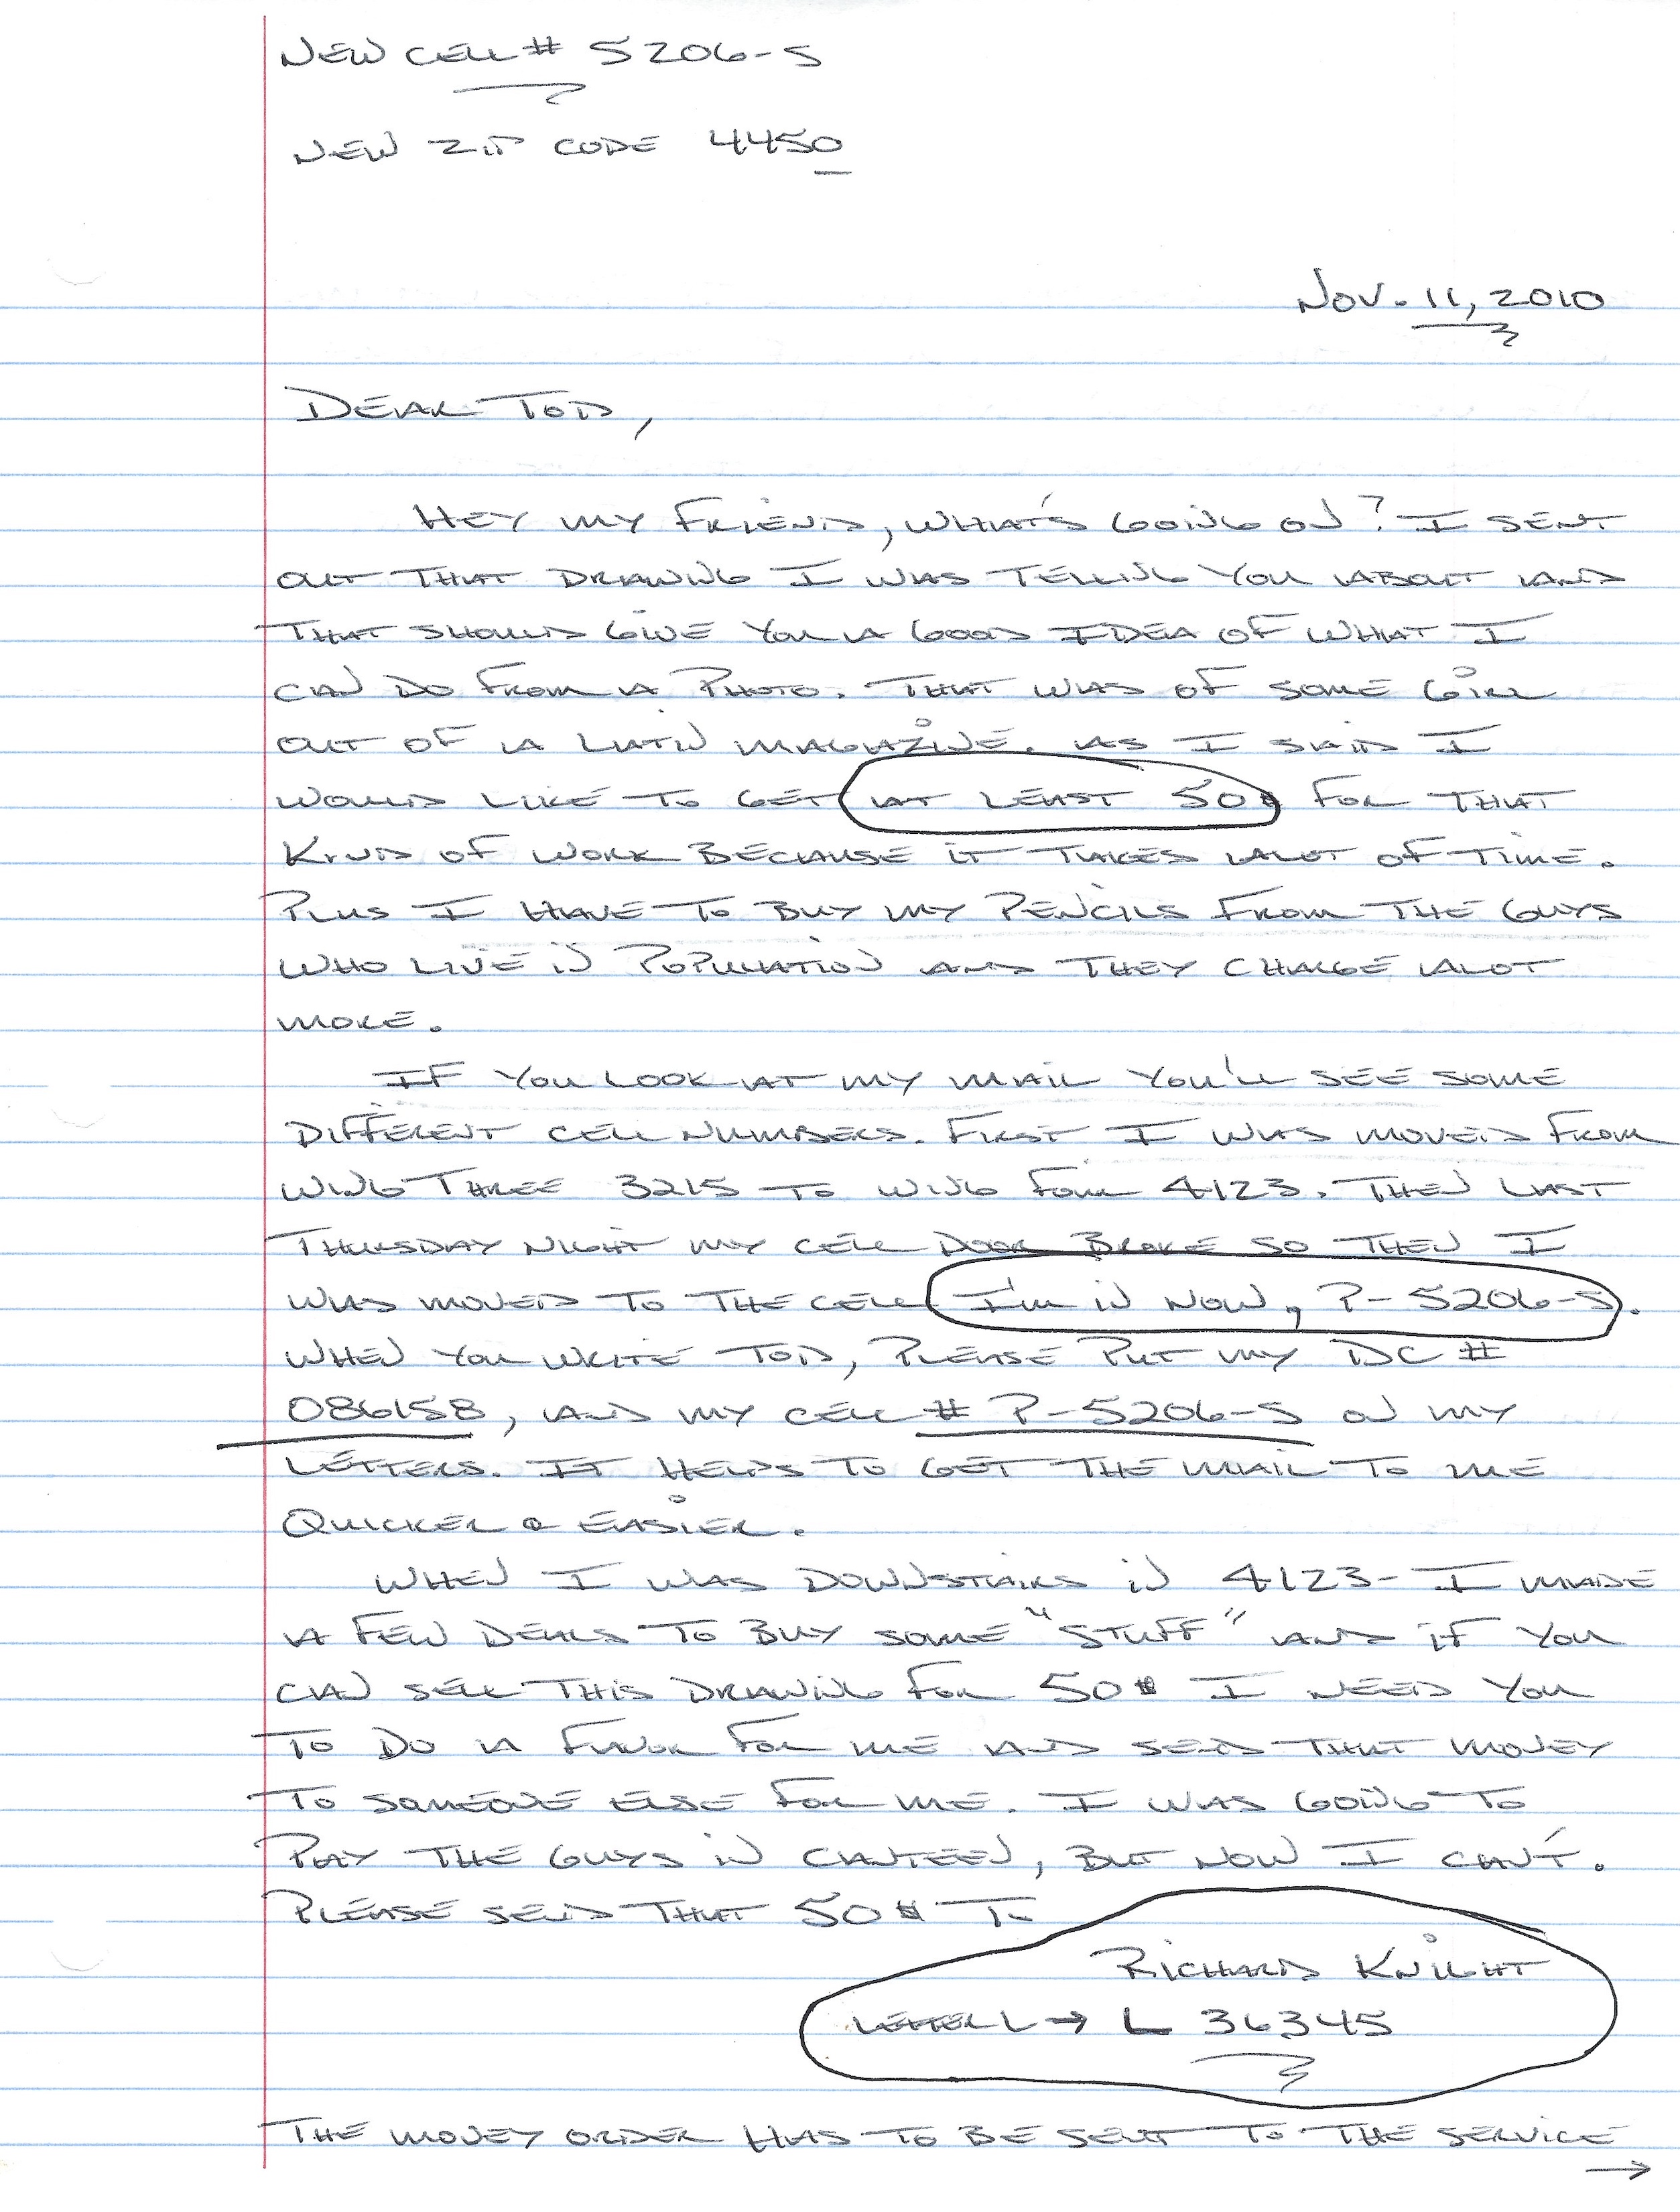 NEW CELL # 5206-S
NEW ZIP CODE 4450
NOV. 11, 2010
DEAR TOD,
HEY MY FRIEND, WHAT'S GOING ON? I SENT
OUT THAT DRAWING I WAS TELLING YOU ABOUT AND
THAT SHOULD GIVE YOU A GOOD IDEA OF WHAT I
CAN DO FROM A PHOTO. THAT WAS OF SOME GIRL
OUT OF A LATIN MAGAZINE. AS I SAID I
WOULD LIKE TO GET AT LEAST 50$ FOR THAT
KIND OF WORK BECAUSE IT TAKES ALOT OF TIME.
PLUS I HAVE TO BUY MY PENCILS FROM THE GUYS
WHO LIVE IN POPULATION AND THEY CHARGE ALOT
MORE.
IF YOU LOOK AT MY MAIL YOU'LL SEE SOME
DIFFERENT CELL NUMBERS. FIRST I WAS MOVED FROM
WING THREE 3215 TO WING FOUR 4123. THEN LAST
THURSDAY NIGHT MY CELL DOOR BROKE SO THEN I
WAS MOVED TO THE CELL I'M IN NOW, P-5206-S.
WHEN YOU WRITE TOD, PLEASE PUT MY DC #
086158, AND MY CELL # P-5206-S ON MY
LETTERS. IT HELPS TO GET THE MAIL TO ME
QUICKER & EASIER.
WHEN I WAS DOWNSTAIRS IN 4123- I MADE
A FEW DEALS TO BUY SOME "STUFF" AND IF YOU
CAN SELL THIS DRAWING FOR 50$ I NEED YOU
TO DO A FAVOR FOR ME AND SEND THAT MONEY
TO SOMEONE ELSE FOR ME. I WAS GOING TO
PAY THE GUYS IN CANTEEN, BUT NOW I CAN'T.
PLEASE SEND THAT 50$ TO
RICHARD KNIGHT
LETTER L → L 36345
THE MONEY ORDER HAS TO BE SENT TO THE SERVICE
→